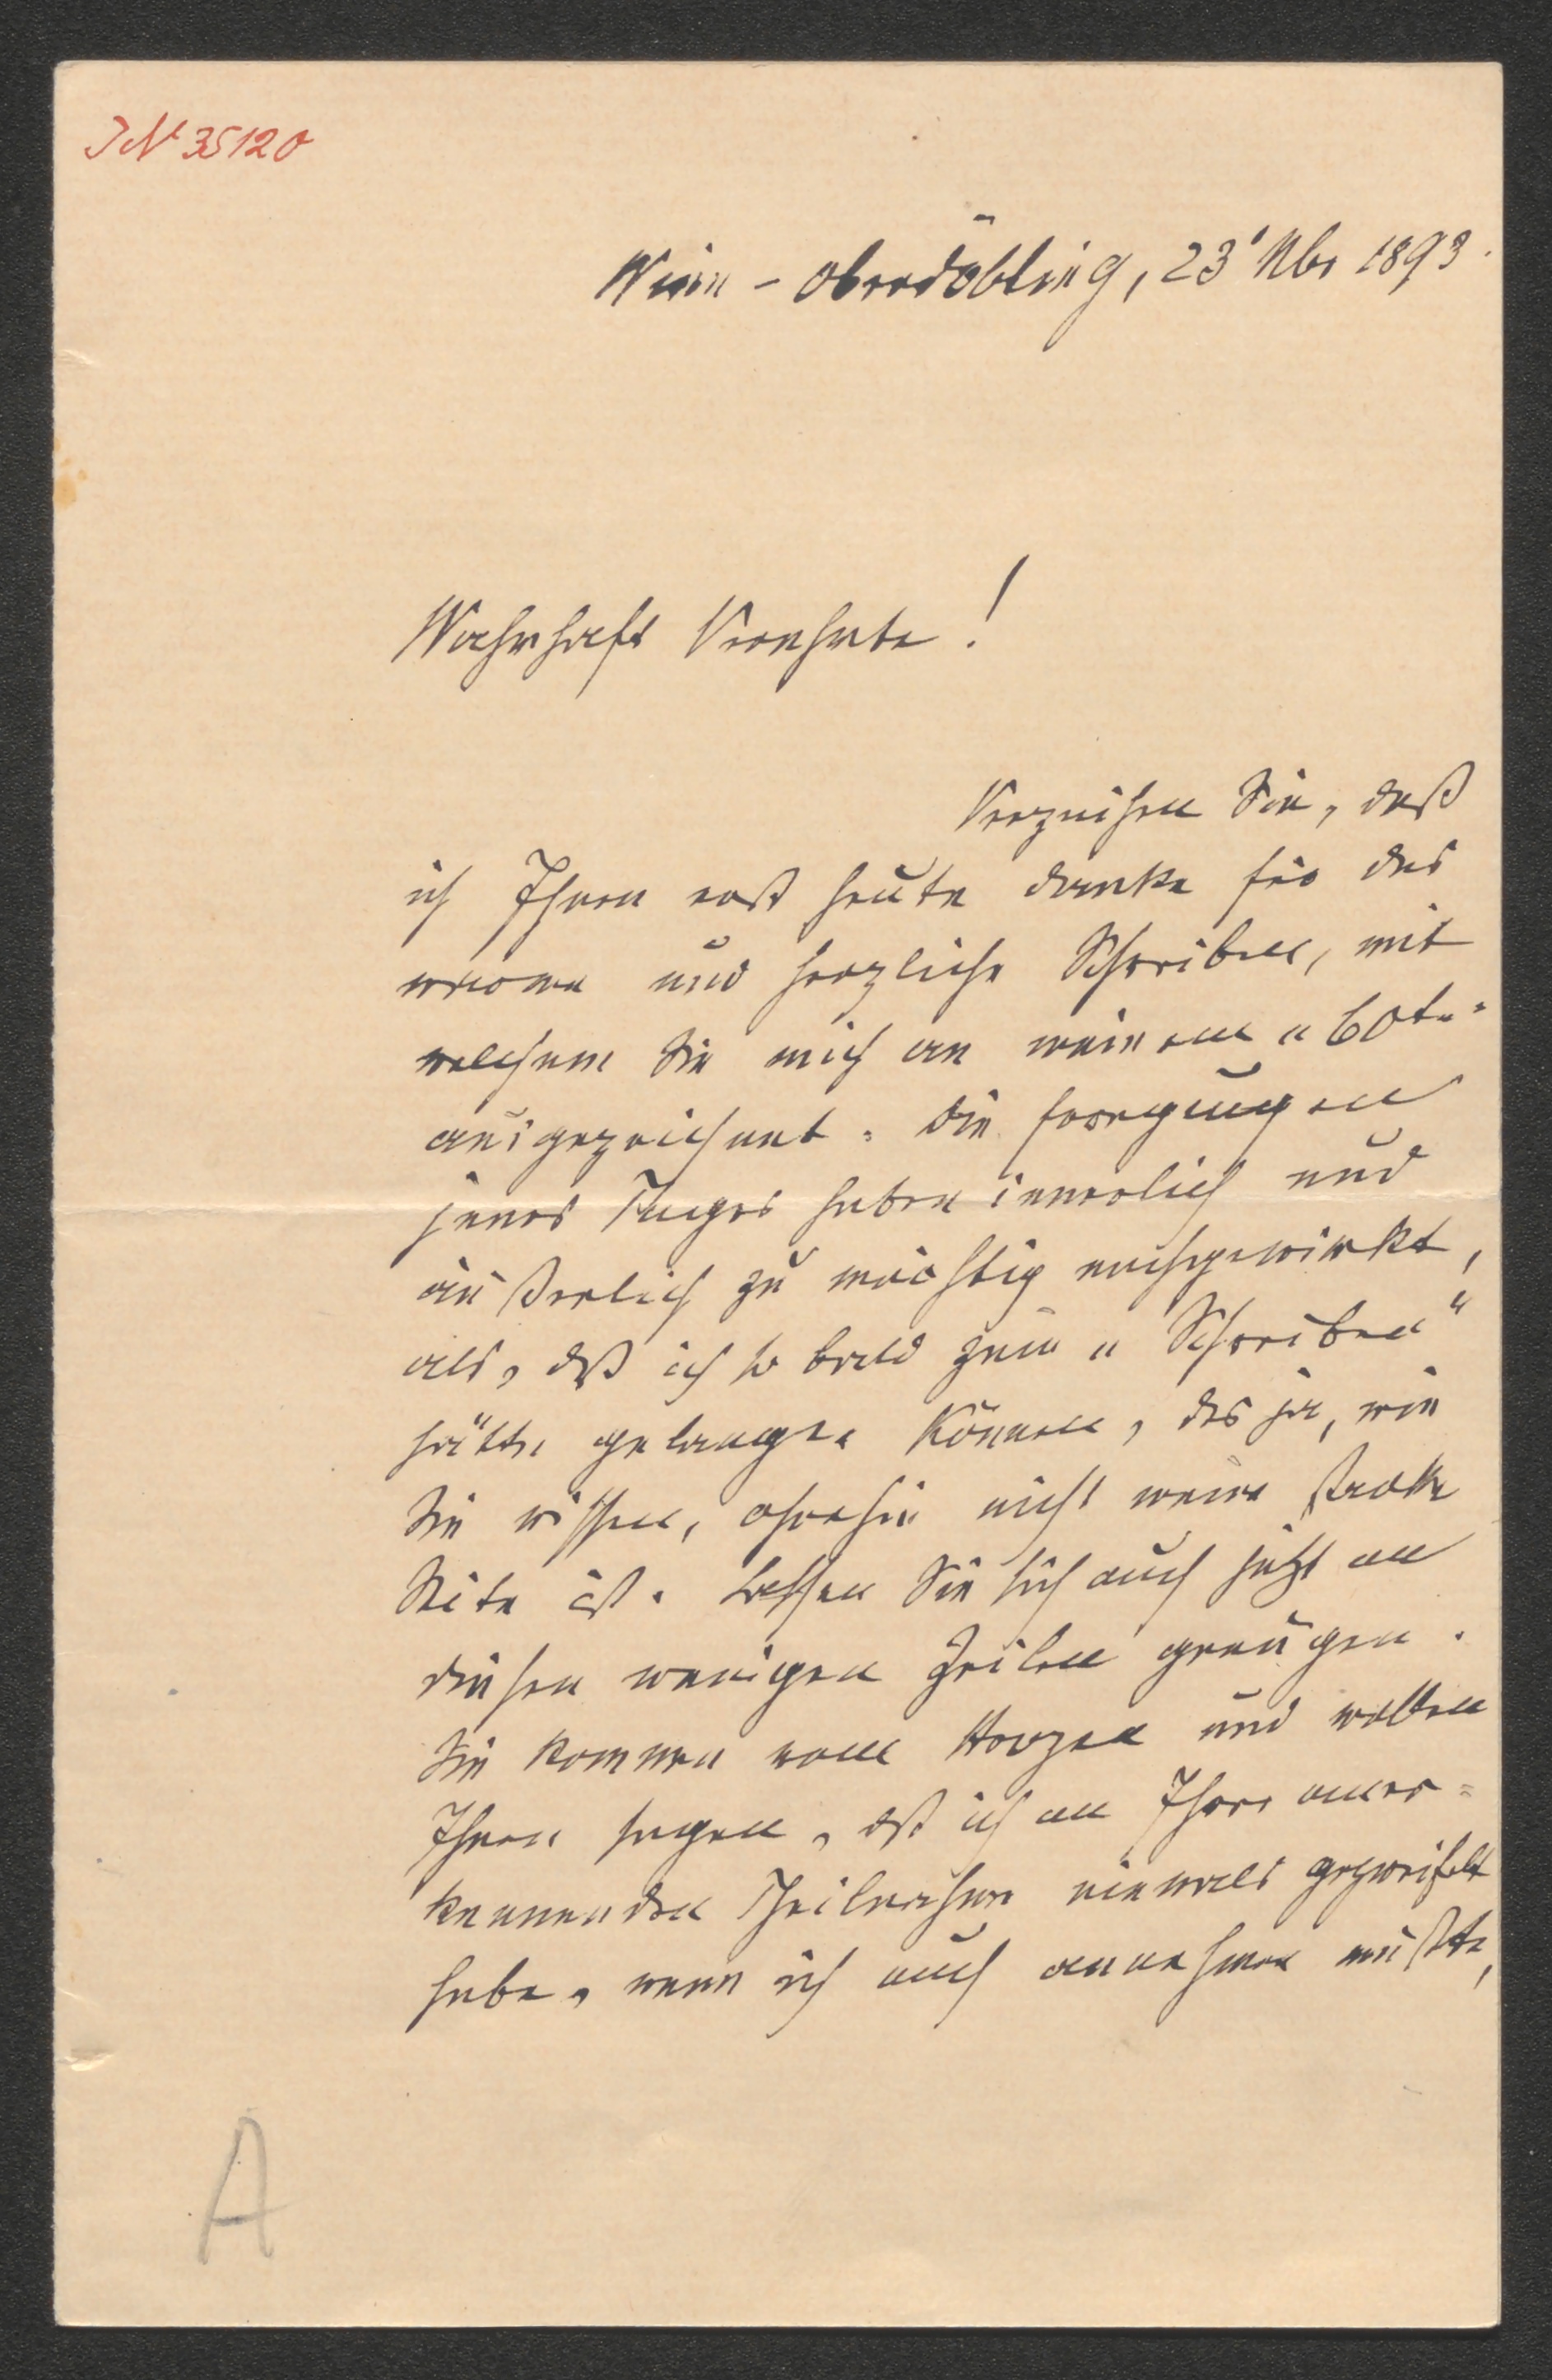 JN 35120
Wien-Oberdöbling, 23' Nbr 1893.
Wahrhaft Verehrte!
Verzeihen Sie, daß
ich Ihnen erst heute danke für das
warme und herzliche Schreiben, mit
welchem Sie mich an meinem „60t."
ausgezeichnet. Die Erregungen
jenes Tages haben innerlich und
äußerlich zu mächtig nachgewirkt,
als, daß ich so bald zum „Schreiben"
hätte gelangen können, das ja, wie
Sie wissen, ohnehin nicht meine starke
Seite ist. Lassen Sie sich auch jetzt an
diesen wenigen Zeilen genügen.
Sie kommen vom Herzen und wollen
Ihnen sagen, dß ich an Ihrer aner=
kennenden Theilnahme niemals gezweifelt
habe, wenn ich auch annehmen mußte,
A